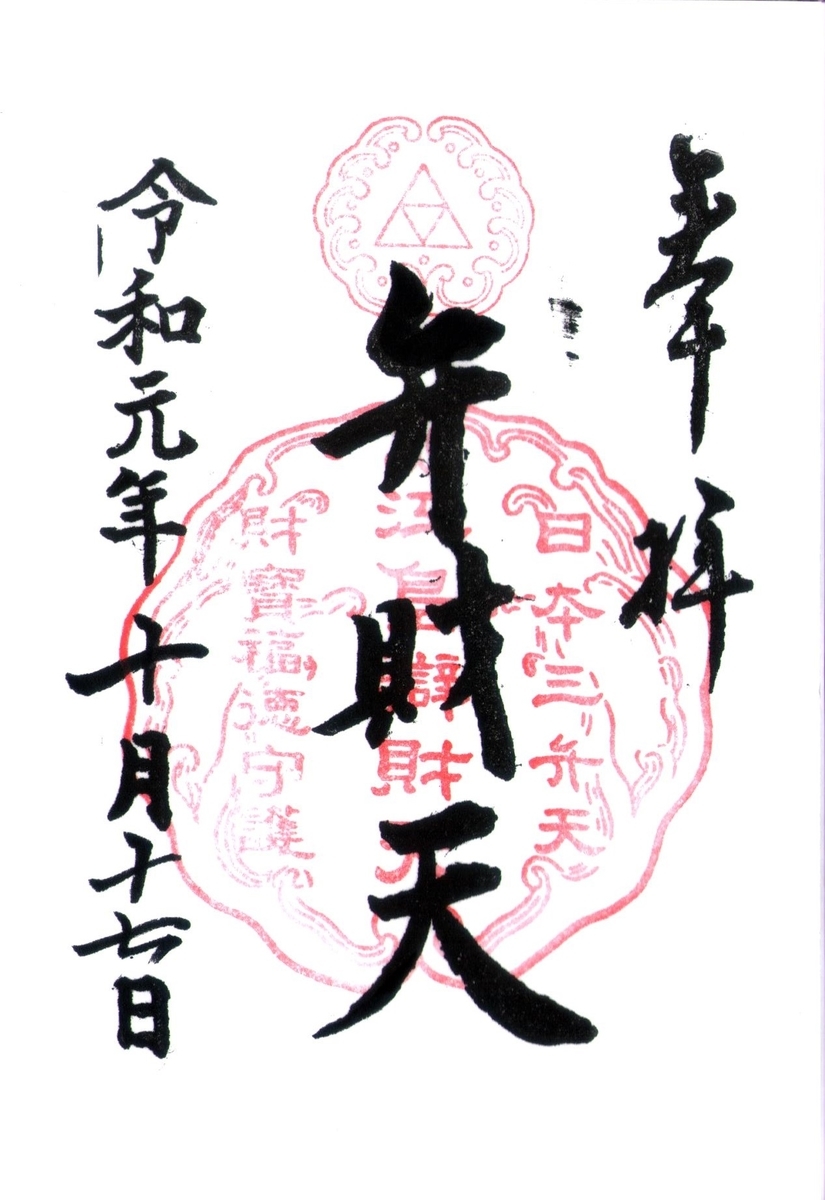 奉拝
日本三弁天
江島辯財天
弁財天
財寶福徳守護
令和元年十月十七日